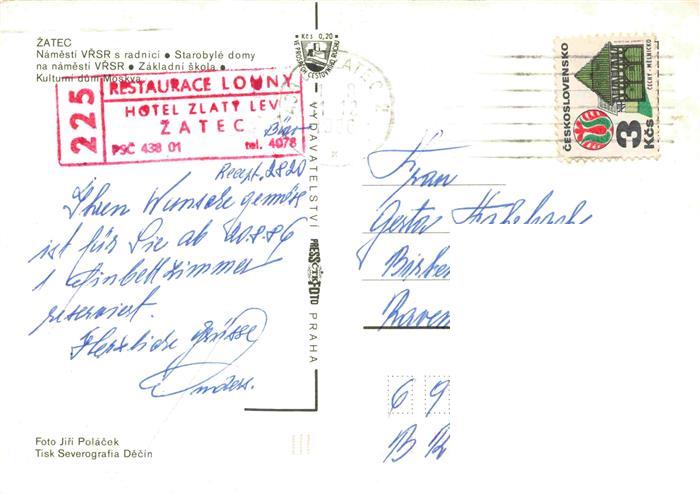 ŽATEC
Náměstí VŘSR s radnicí • Starobylé domy
na náměstí VŘSR • Základní škola •
Kulturní dům Moskva
Kčs 0,20
225
RESTAURACE LOUNY
HOTEL ZLATÝ LEV
ŽATEC
PSČ 438 01 tel. 4078
Büro
Recept. 2820
Ihren Wunsche gemäss
ist für Sie ab 20.8.86
1 Einbettzimmer
reserviert.
Herzliche Grüsse
VYDAVATELSTVÍ PRESSFOTO PRAHA
ČESKOSLOVENSKO
ČECHY - MĚLNICKO
3 Kčs
Frau
Raven
6 9
Foto Jiří Poláček
Tisk Severografia Děčín